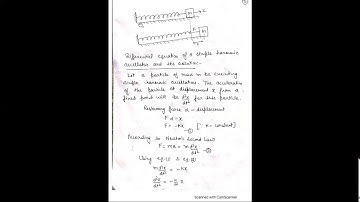 Differential equation of a simple harmonic
oscillator and its solution-
Let a particle of mass m be executing
simple harmonic oscillations. The acceleration
of the particle at displacement x from a
fixed point will be d²x/dt² for this particle.
Restoring force α - displacement
F α - x
F = - Kx ① [K = constant]
According to Newton's second Law
F = ma = m d²x/dt² ②
Using eq. ① & eq. ②
m d²x/dt² = - Kx
d²x/dt² = - K/m x
Scanned with CamScanner